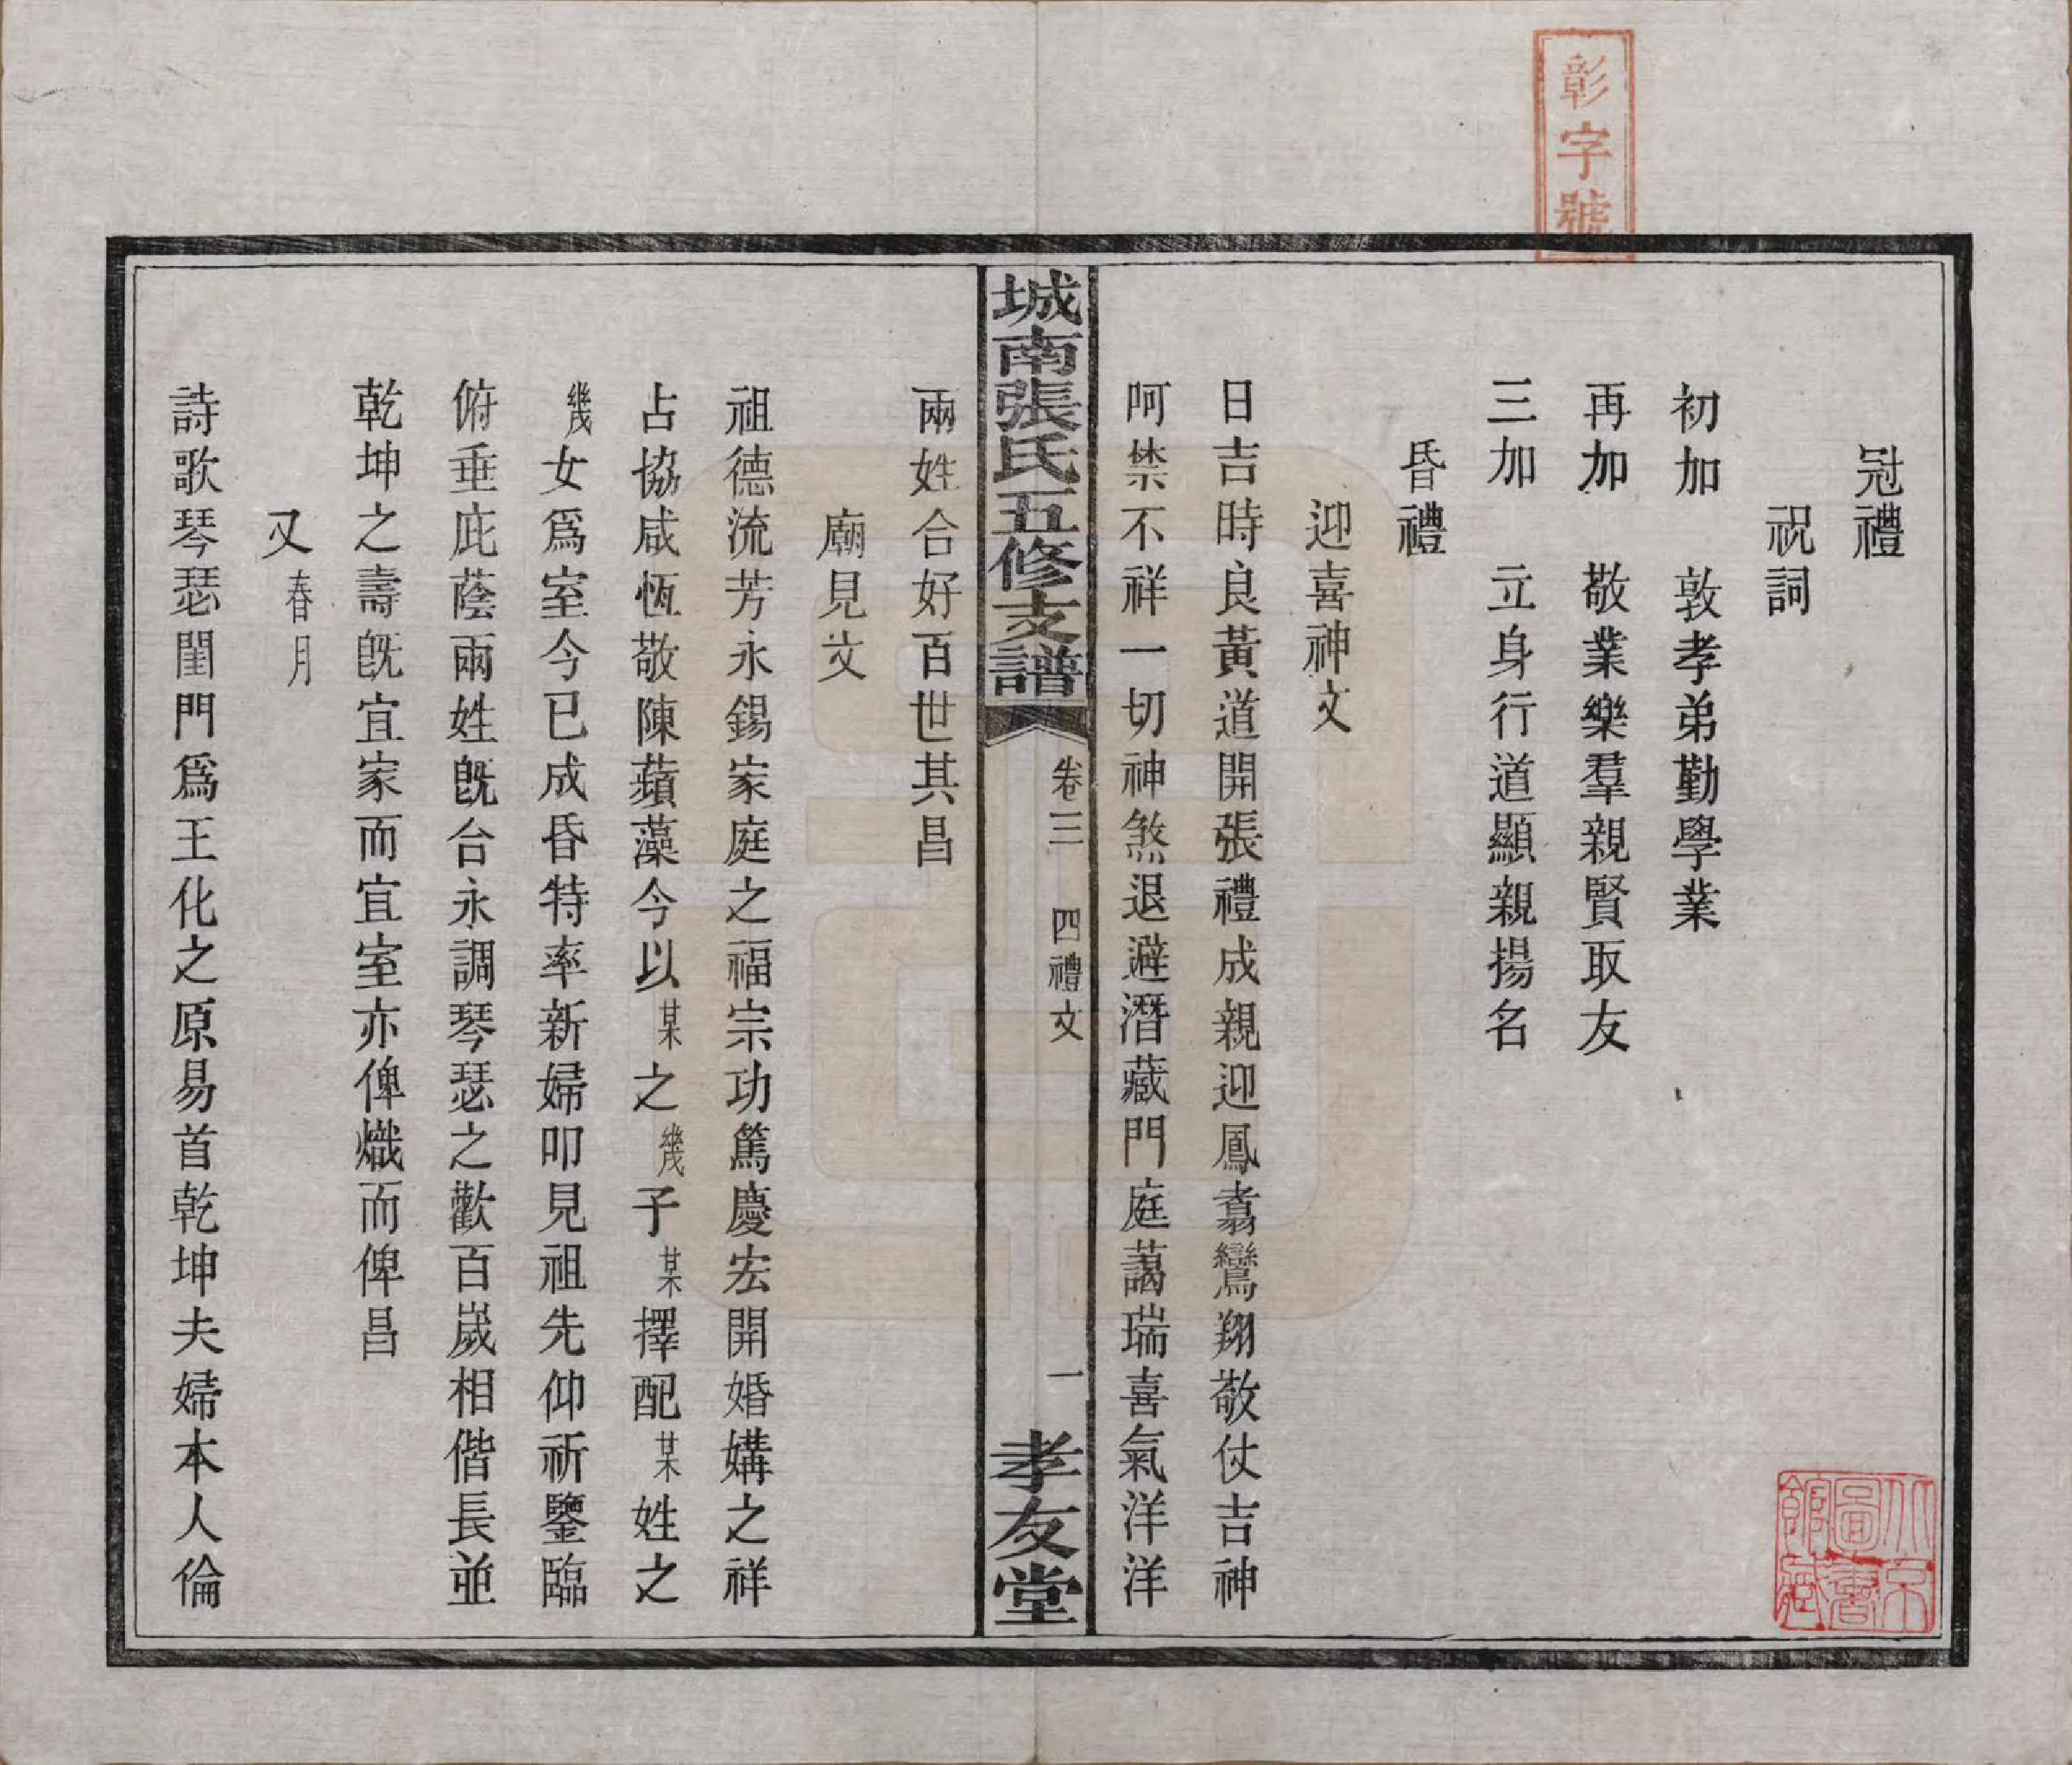 彰字號
冠禮
祝詞
初加　敦孝弟勤學業
再加　敬業樂羣親賢取友
三加　立身行道顯親揚名
昏禮
迎喜神文
日吉時良黃道開張禮成親迎鳳翥鸞翔敬仗吉神
呵禁不祥一切神煞退避潛藏門庭藹瑞喜氣洋洋
城南張氏五修支譜　卷三　四禮文　一　孝友堂
兩姓合好百世其昌
廟見文
祖德流芳永錫家庭之福宗功篤慶宏開婚媾之祥
占協咸恆敬陳蘋藻今以某之幾子某擇配某姓之
幾女爲室今已成昏特率新婦叩見祖先仰祈鑒臨
俯垂庇蔭兩姓旣合永調琴瑟之歡百歲相偕長並
乾坤之壽旣宜家而宜室亦俾熾而俾昌
又春月
詩歌琴瑟閨門爲王化之原易首乾坤夫婦本人倫
北京圖書館藏